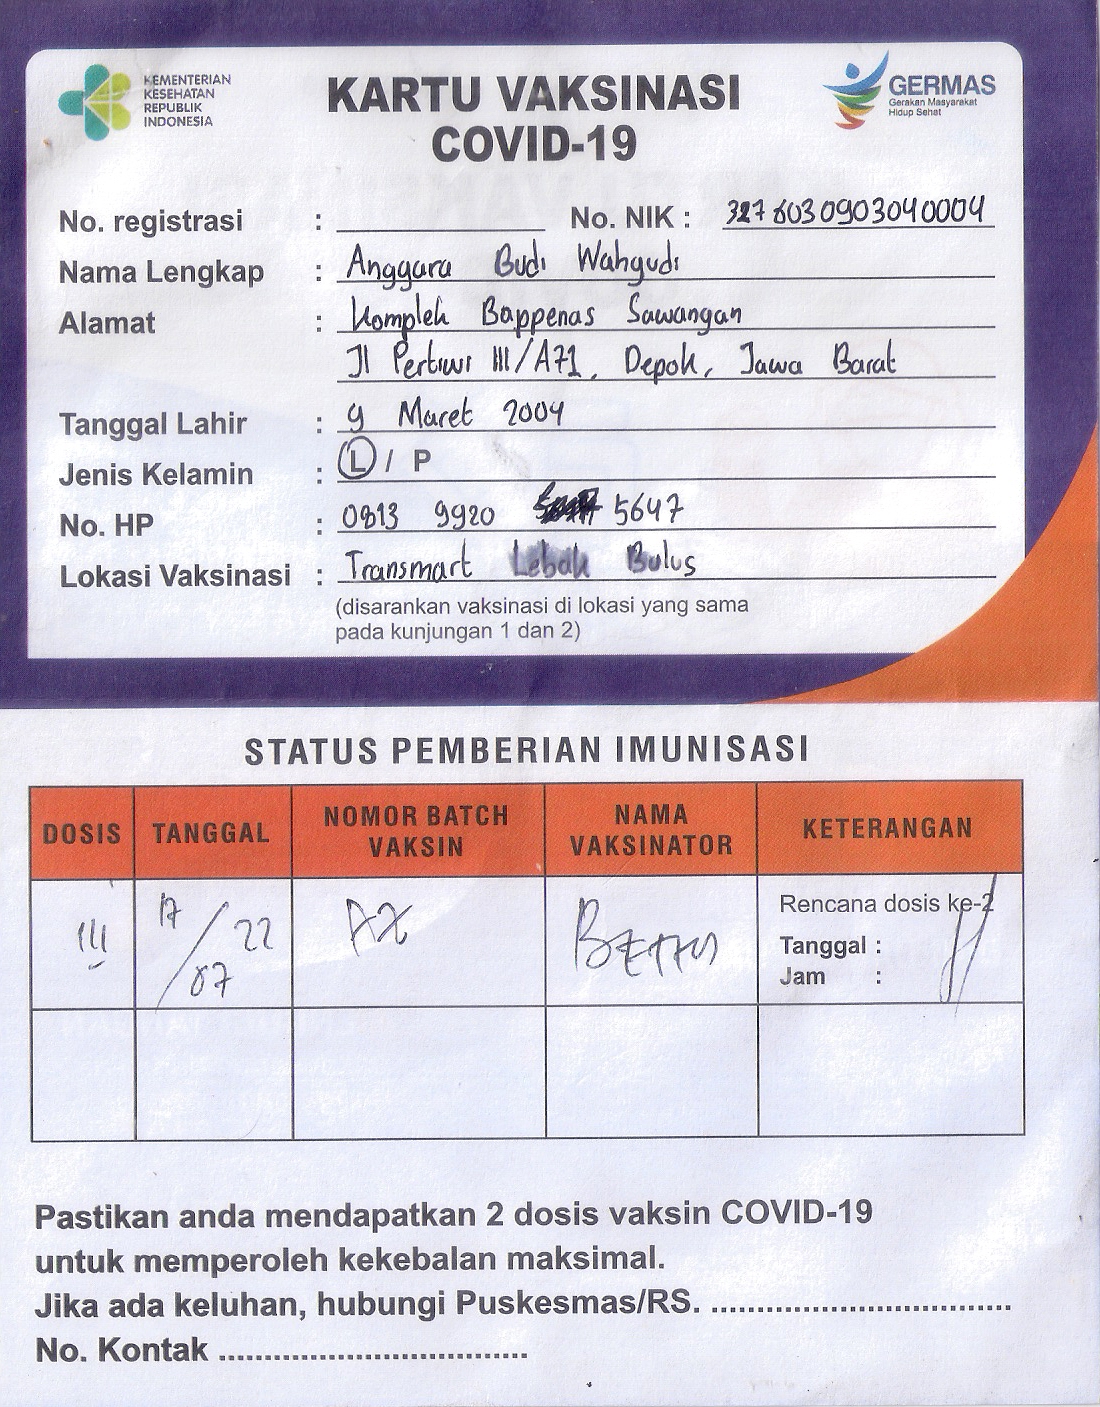 KEMENTERIAN
KESEHATAN
REPUBLIK
INDONESIA
KARTU VAKSINASI
COVID-19
GERMAS
Gerakan Masyarakat
Hidup Sehat
No. registrasi : No. NIK : 3276030903040004
Nama Lengkap : Anggara Budi Wahyudi
Alamat : Komplek Bappenas Sawangan
Jl Pertiwi III/A71, Depok, Jawa Barat
Tanggal Lahir : 9 Maret 2004
Jenis Kelamin : L / P
No. HP : 0813 9920 5647
Lokasi Vaksinasi : Transmart Lebak Bulus
(disarankan vaksinasi di lokasi yang sama
pada kunjungan 1 dan 2)
STATUS PEMBERIAN IMUNISASI
DOSIS TANGGAL NOMOR BATCH VAKSIN NAMA VAKSINATOR KETERANGAN
III 17/07/22 AZ Rencana dosis ke-2
Tanggal :
Jam :
Pastikan anda mendapatkan 2 dosis vaksin COVID-19
untuk memperoleh kekebalan maksimal.
Jika ada keluhan, hubungi Puskesmas/RS. ..................................
No. Kontak ..................................